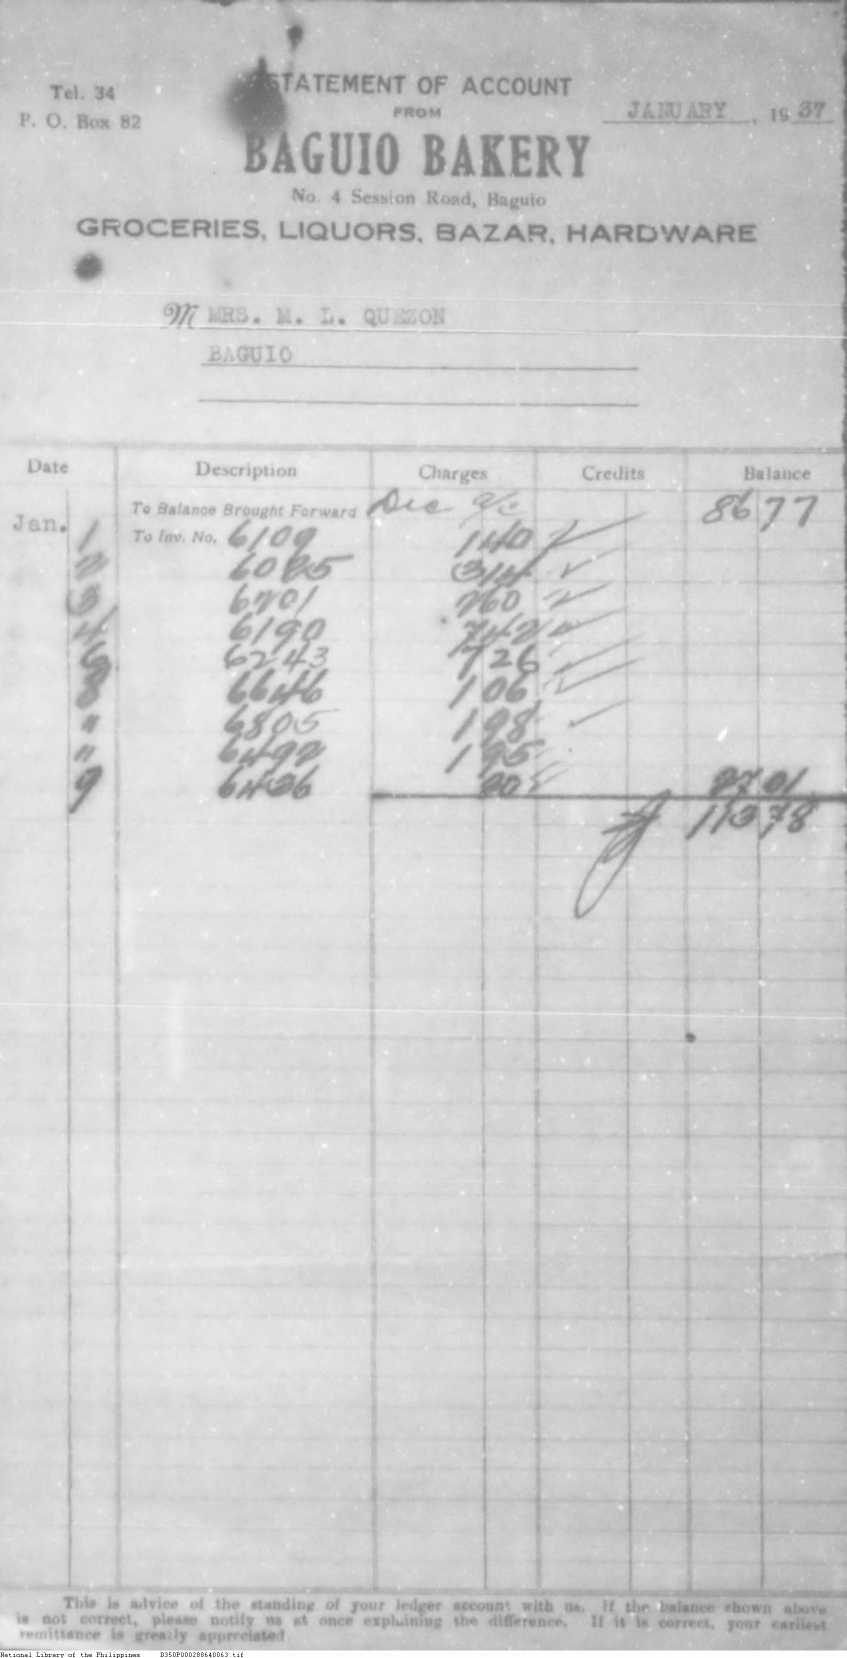 STATEMENT OF ACCOUNT
Tel. 34
FROM
JANUARY, 1937
P. O. Box 82
BAGUIO BAKERY
No. 4 Session Road, Baguio
GROCERIES, LIQUORS, BAZAR, HARDWARE
M MRS. M. L. QUEZON
BAGUIO
Date Description Charges Credits Balance
To Balance Brought Forward Dec a/c 86 77
Jan. 1 To Inv. No. 6109 1 40
2 6085 3 14
3 6201 2 60
4 6190 7 42
6 6243 7 26
8 6646 1 06
" 6805 1 98
" 6492 1 95
9 6436 20 27 01
113 78
This is advice of the standing of your ledger account with us. If the balance shown above
is not correct, please notify us at once explaining the difference. If it is correct, your earliest
remittance is greatly appreciated
National Library of the Philippines D350P000288640063.tif